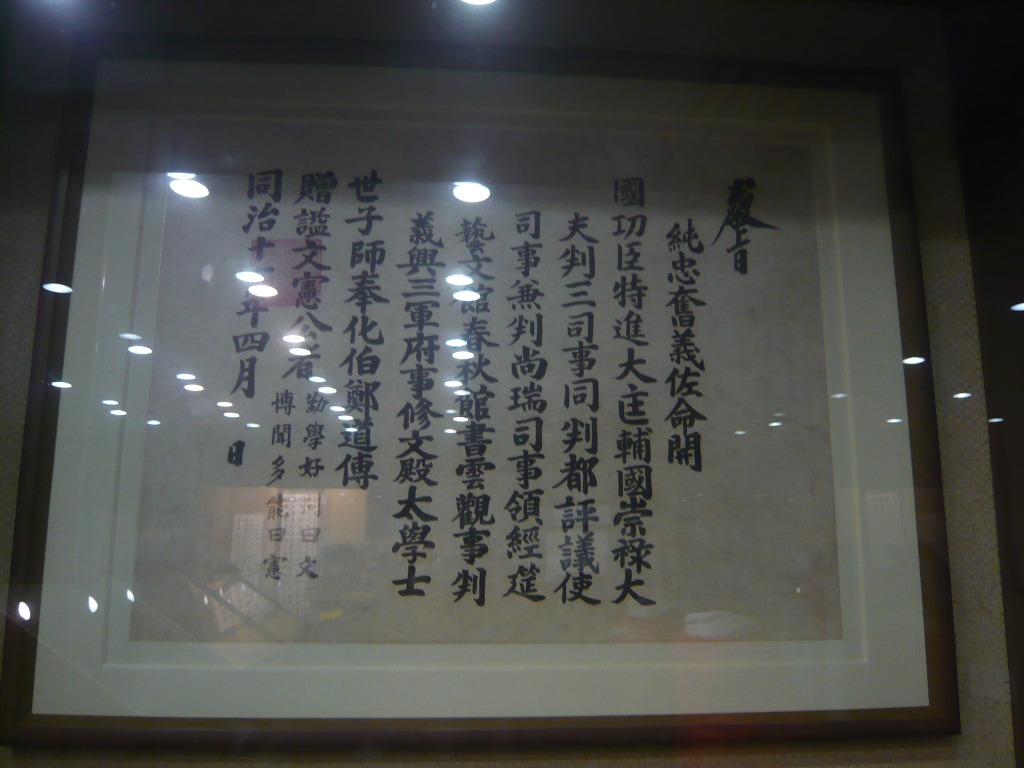 敎旨
純忠奮義佐命開
國功臣特進大匡輔國崇祿大
夫判三司事同判都評議使
司事兼判尚瑞司事領經筵
藝文館春秋館書雲觀事判
義興三軍府事修文殿太學士
世子師奉化伯鄭道傳
贈諡文憲公者
勤學好 曰文
博聞多能曰憲
同治十 年四月 日